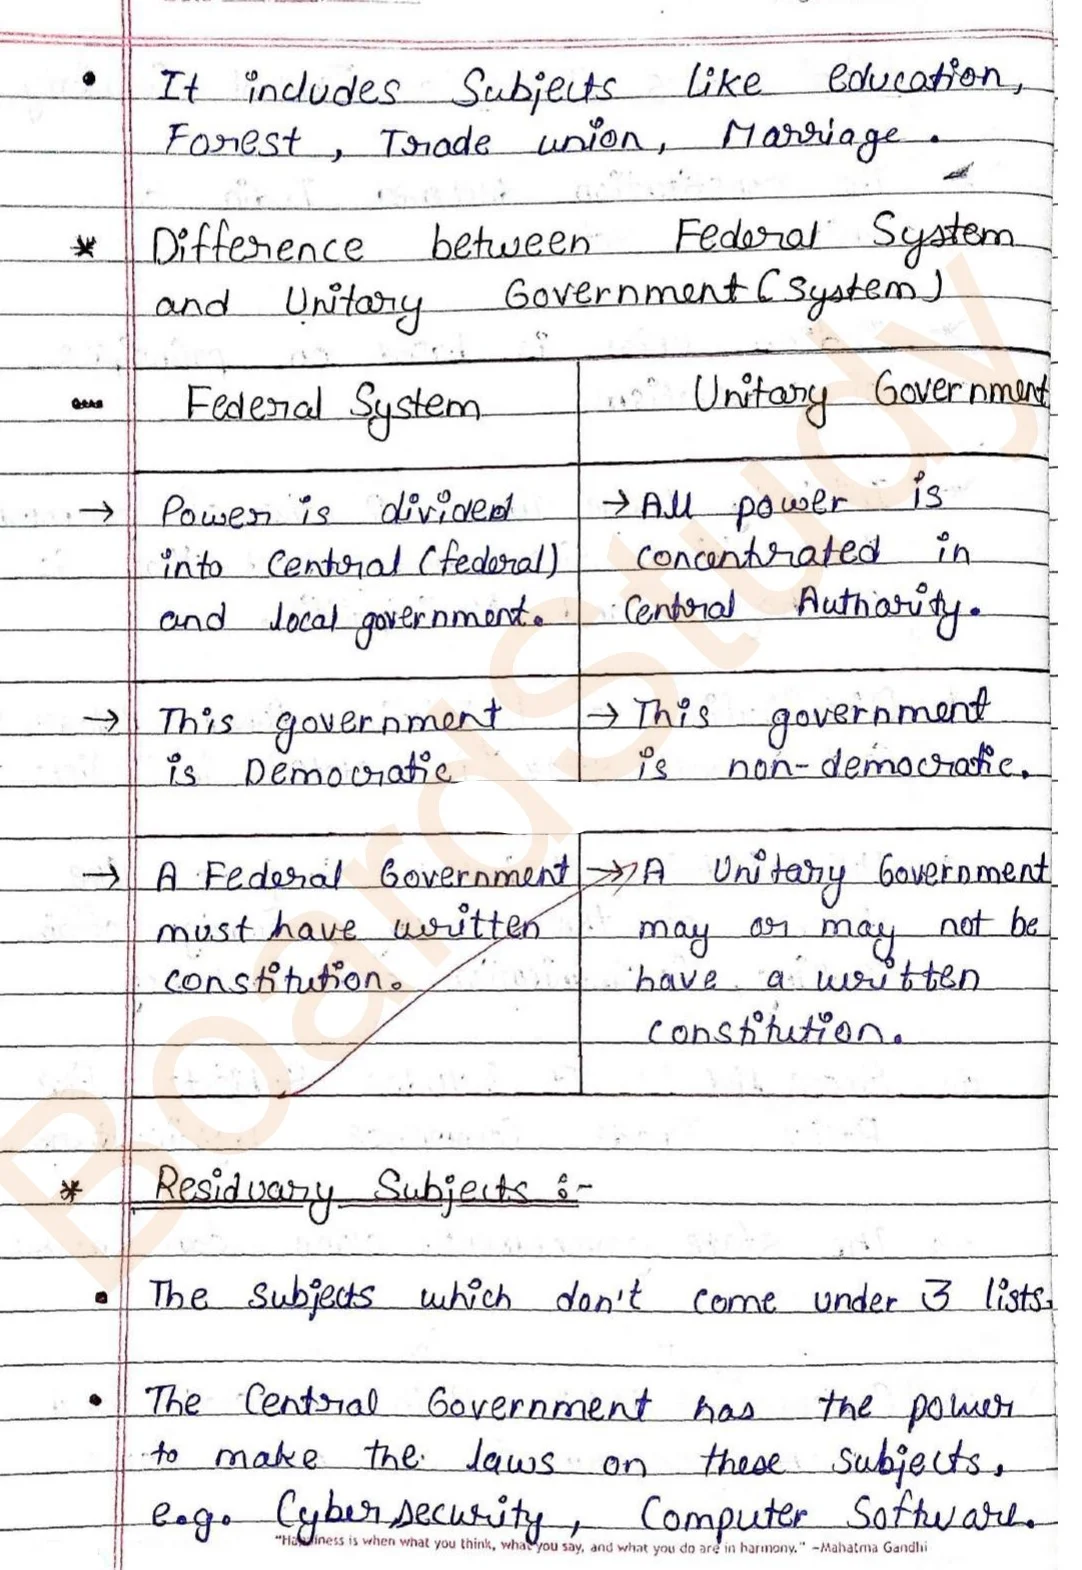 • It includes Subjects like education,
Forest, Trade union, Marriage.
* Difference between Federal System
and Unitary Government (System)
Federal System
Unitary Government
→ Power is divided
into Central (federal)
and local government.
→ All power is
concentrated in
Central Authority.
→ This government
is Democratic
→ This government
is non-democratic.
→ A Federal Government
must have written
constitution.
→ A Unitary Government
may or may not be
have a written
constitution.
* Residuary Subjects :-
• The Subjects which don't come under 3 lists.
• The Central Government has the power
to make the laws on these subjects.
e.g. Cybersecurity, Computer Software.
"Happiness is when what you think, what you say, and what you do are in harmony." ~Mahatma Gandhi
BoardStudy